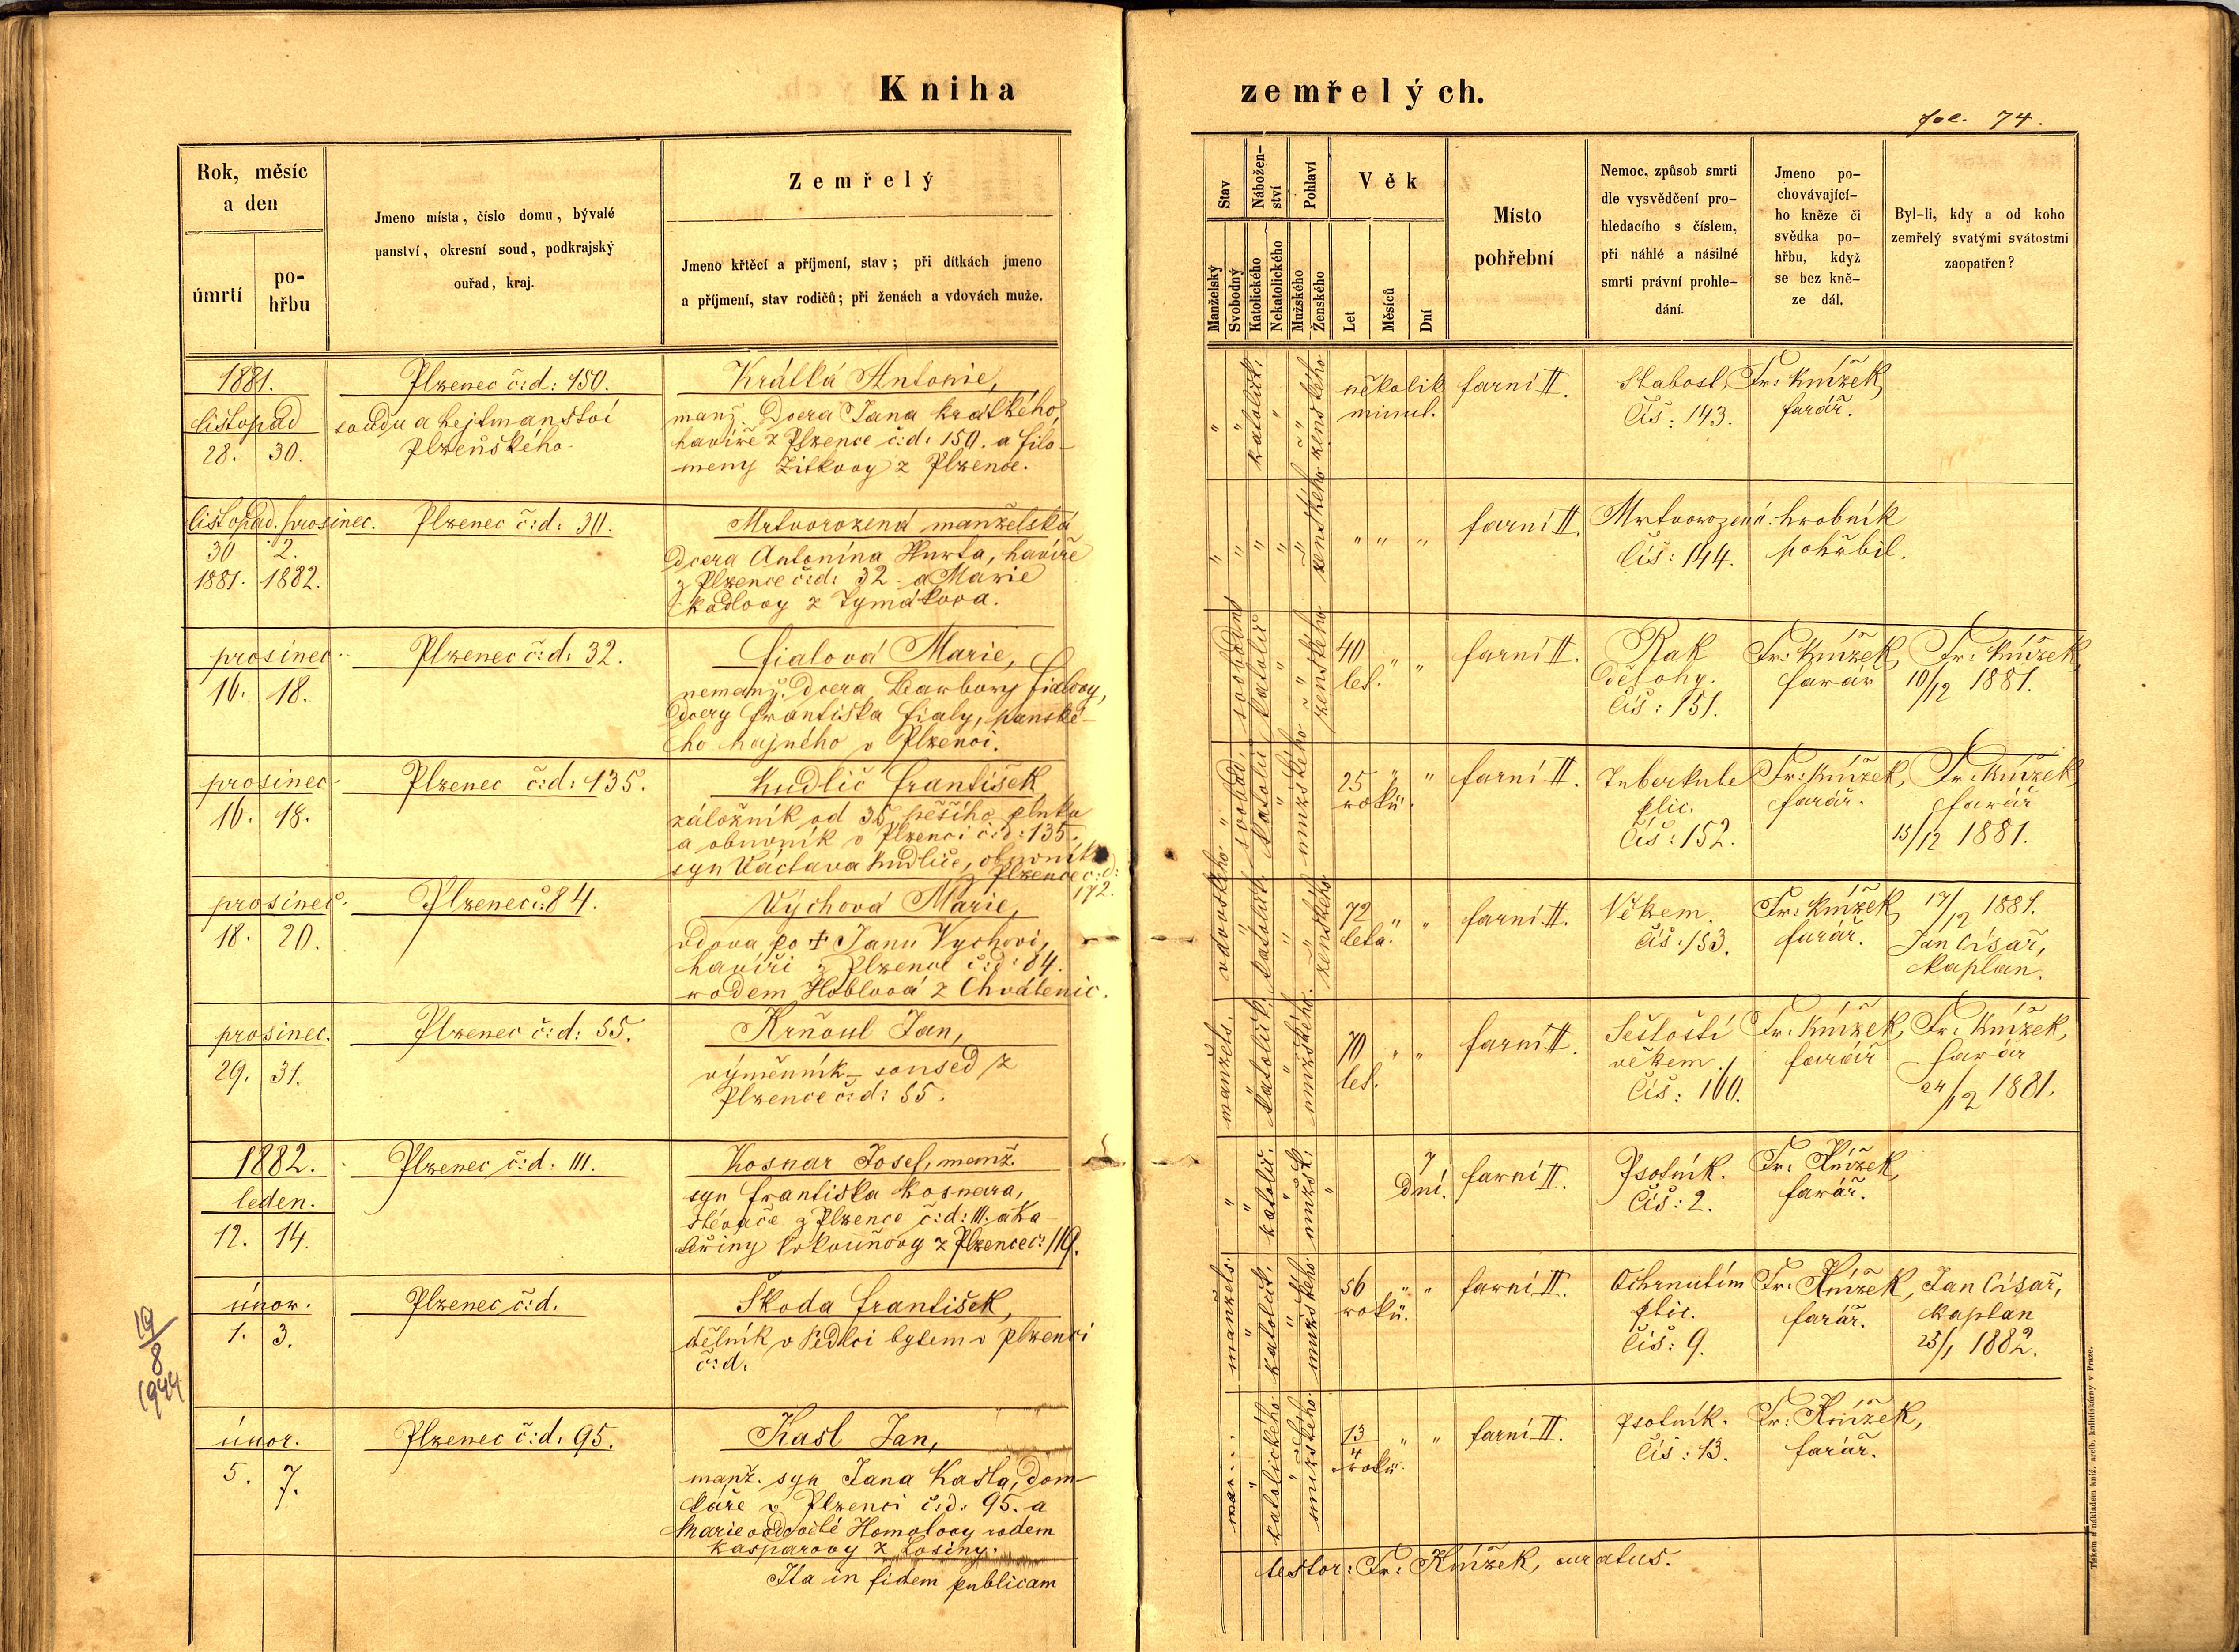 Kniha
zemřelých.
fol. 74.
Rok, měsíc
a den
úmrtí
po-
hřbu
Jmeno místa, číslo domu, bývalé
panství, okresní soud, podkrajský
ouřad, kraj.
Zemřelý
Jmeno křtěcí a příjmení, stav; při dítkách jmeno
a příjmení, stav rodičů; při ženách a vdovách muže.
Stav
Manželský
Svobodný
Nábožen-
ství
Katolického
Nekatolického
Pohlaví
Mužského
Ženského
Věk
Let
Měsíců
Dní
Místo
pohřební
Nemoc, způsob smrti
dle vysvědčení pro-
hledacího s číslem,
při náhlé a násilné
smrti právní prohle-
dání.
Jmeno po-
chovávající-
ho kněze či
svědka po-
hřbu, když
se bez kně-
ze dál.
Byl-li, kdy a od koho
zemřelý svatými svátostmi
zaopatřen?
1881.
listopad
28. 30.
Plzenec č:d: 150.
soudu a hejtmanství
Plzeňského.
Krátká Antonie,
manž. Dcera Jana Krátkého,
havíře z Plzence č:d: 150. a Filo-
meny Zitkovy z Plzence.
" " katolick. " " ženského
několik
minut.
farní II.
Slabost.
Čís: 143.
Fr: Knížek,
farář.
listopad. prosinec.
30 2.
1881. 1882.
Plzenec č:d: 30.
Mrtvorozená manželská
Dcera Antonína Hurta, havíře
z Plzence č:d: 32 a Marie
Kodlovy z Tymákova.
" " " " " ženského
" " "
farní II.
Mrtvorozená.
Čís: 144.
hrobník
pohřbil.
prosinec.
16. 18.
Plzenec č:d: 32.
Fialová Marie,
nemanž. Dcera Barbory Fialovy,
dcery Františka Fialy, panské-
ho hajného v Plzenci.
svobodná katolick " " ženského
40
let. " "
farní II.
Rak
Dělohy.
Čís: 151.
Fr: Knížek,
farář
Fr: Knížek
10/12 1881.
prosinec.
16. 18.
Plzenec č:d: 135.
Kudlič František
záložník od 35. pěšího pluku
a obuvník v Plzenci č:d: 135.
syn Václava Kudliče, obuvníka
Plzence č:d:
172.
" svobod. katolick. " mužského "
25 " "
roků.
farní II.
Tuberkule
plic.
Čís: 152.
Fr: Knížek,
farář.
Fr: Knížek
farář
15/12 1881.
prosinec.
18. 20.
Plzenec č: 84.
Výchová Marie,
vdova po † Janu Vychovi,
havíři z Plzence č:d: 84.
rodem Hoblová z Chválenic.
vdovského " katolick. " " ženského
72
leta. " "
farní II.
Věkem.
Čís: 153.
Fr: Knížek
farář.
17/12 1881.
Jan Císař,
kaplan.
prosinec.
29. 31.
Plzenec č:d: 55.
Krňoul Jan,
výměnník - soused z
Plzence č:d: 55.
manžels. " katolick. " mužského.
70
let. " "
farní II.
Sešlostí
věkem.
Čís: 160.
Fr: Knížek,
farář
Fr: Knížek,
farář
24/12 1881.
1882.
leden.
12. 14.
Plzenec č:d: 111.
Kosnar Josef, manž.
syn Františka Kosnara,
slévače z Plzence č:d: 111. a Ka-
teřiny z Plzence č: 119.
" " katolic. " mužsk. "
7
Dní.
farní II.
Psotník.
Čís: 2.
Fr: Knížek,
farář.
únor.
1. 3.
Plzenec č:d.
Škoda František,
dělník v Sedlci bytem v Plzenci
č:d.
manžels. " katolick. " mužského
56 " "
roků.
farní II.
Ochrnutím
plic.
Čís: 9.
Fr: Knížek,
farář.
Jan Císař,
kaplan
25/1 1882.
19/8 1944
únor.
5. 7.
Plzenec č:d: 95.
Kasl Jan,
manž. syn Jana Kasla, dom-
káře v Plzenci č:d: 95. a
Marie ovdovělé Homolovy rodem
Kasparovy z Losiny.
" katolického " mužského
13/4 " "
roků.
farní II.
Psotník.
Čís: 13.
Fr: Knížek,
farář.
Ita in fidem publicam
testor: Fr: Knížek, curatus.
Tiskem a nákladem kníž. arcib. knihtiskárny v Praze.